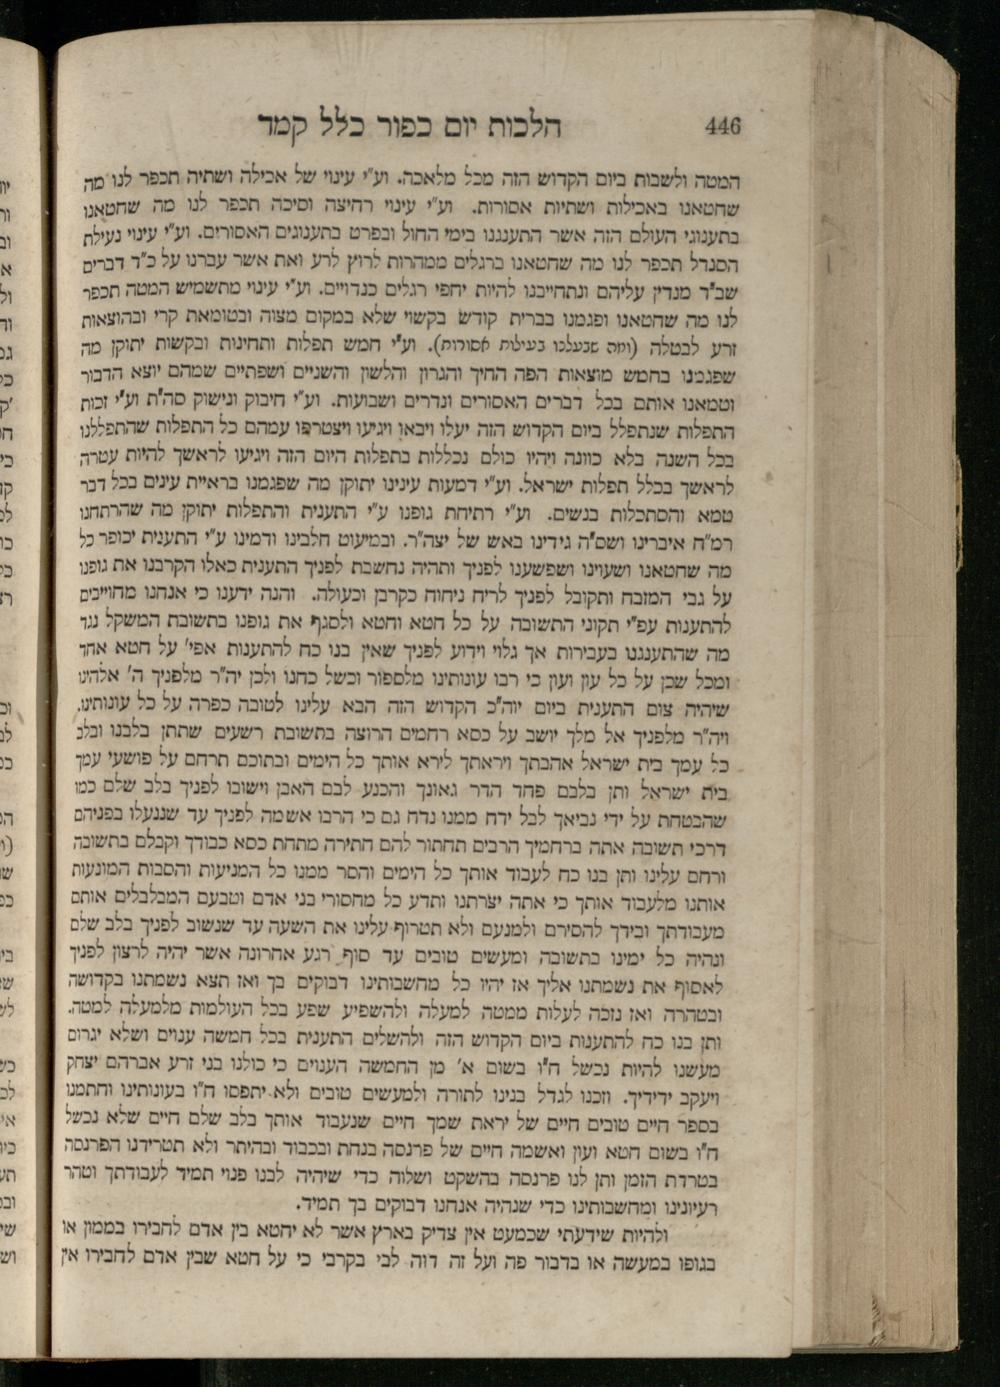 446
הלכות יום כפור כלל קמד
המטה ולשבות ביום הקדוש הזה מכל מלאכה. וע"י עינוי של אכילה ושתיה תכפר לנו מה
שחטאנו באכילות ושתיות אסורות. וע"י עינוי רחיצה וסיכה תכפר לנו מה שחטאנו
בתענוגי העולם הזה אשר התענגנו בימי החול ובפרט בתענוגים האסורים. וע"י עינוי נעילת
הסנדל תכפר לנו מה שחטאנו ברגלים ממהרות לרוץ לרע ואת אשר עברנו על כ"ד דברים
שב"ד מנדין עליהם ונתחייבנו להיות יחפי רגלים כנדויים. וע"י עינוי מתשמיש המטה תכפר
לנו מה שחטאנו ופגמנו בברית קודש בקשוי שלא במקום מצוה ובטומאת קרי ובהוצאות
זרע לבטלה (ומה שבעלנו בעילות אסורות). וע"י חמש תפלות ותחינות ובקשות יתוקן מה
שפגמנו בחמש מוצאות הפה החיך והגרון והלשון והשניים ושפתיים שמהם יוצא הדבור
וטמאנו אותם בכל דברים האסורים ונדרים ושבועות. וע"י חיבוק ונישוק סה"ת וע"י זכות
התפלות שנתפלל ביום הקדוש הזה יעלו ויבאו ויגיעו ויצטרפו עמהם כל התפלות שהתפללנו
בכל השנה בלא כוונה ויהיו כולם נכללות בתפלות היום הזה ויגיעו לראשך להיות עטרה
לראשך בכלל תפלות ישראל. וע"י דמעות עינינו יתוקן מה שפגמנו בראיית עינים בכל דבר
טמא והסתכלות בנשים. וע"י רתיחת גופנו ע"י התענית והתפלות יתוקן מה שהרתחנו
רמ"ח איברינו ושס"ה גידינו באש של יצה"ר. ובמיעוט חלבינו ודמינו ע"י התענית יכופר כל
מה שחטאנו ושעוינו ושפשענו לפניך ותהיה נחשבת לפניך התענית כאלו הקרבנו את גופנו
על גבי המזבח ותקובל לפניך לריח ניחוח כקרבן וכעולה. והנה ידענו כי אנחנו מחוייבים
להתענות עפ"י תקוני התשובה על כל חטא וחטא ולסגף את גופנו בתשובת המשקל נגד
מה שהתענגנו בעבירות אך גלוי וידוע לפניך שאין בנו כח להתענות אפי' על חטא אחד
ומכל שכן על כל עון ועון כי רבו עונותינו מלספור וכשל כחנו ולכן יה"ר מלפניך ה' אלהינו
שיהיה צום התענית ביום יוה"כ הקדוש הזה הבא עלינו לטובה כפרה על כל עונותינו.
ויה"ר מלפניך אל מלך יושב על כסא רחמים הרוצה בתשובת רשעים שתתן בלבנו ובלב
כל עמך בית ישראל אהבתך ויראתך לירא אותך כל הימים ובתוכם תרחם על פושעי עמך
בית ישראל ותן בלבם פחד הדר גאונך והכנע לבם האבן וישובו לפניך בלב שלם כמו
שהבטחת על ידי נביאך לבל ידח ממנו נדח גם כי הרבו אשמה לפניך עד שננעלו בפניהם
דרכי תשובה אתה ברחמיך הרבים תחתור להם חתירה מתחת כסא כבודך וקבלם בתשובה
ורחם עלינו ותן בנו כח לעבוד אותך כל הימים והסר ממנו כל המניעות והסבות המונעות
אותנו מלעבוד אותך כי אתה יצרתנו ותדע כל מחסורי בני אדם וטבעם המבלבלים אותם
מעבודתך ובידך להסירם ולמנעם ולא תטרוף עלינו את השעה עד שנשוב לפניך בלב שלם
ונהיה כל ימינו בתשובה ומעשים טובים עד סוף רגע אחרונה אשר יהיה לרצון לפניך
לאסוף את נשמתנו אליך אז יהיו כל מחשבותינו דבוקים בך ואז תצא נשמתנו בקדושה
ובטהרה ואז נזכה לעלות ממטה למעלה ולהשפיע שפע בכל העולמות מלמעלה למטה.
ותן בנו כח להתענות ביום הקדוש הזה ולהשלים התענית בכל חמשה ענוים ושלא יגרום
מעשנו להיות נכשל ח"ו בשום א' מן החמשה הענוים כי כולנו בני זרע אברהם יצחק
ויעקב ידידיך. וזכנו לגדל בנינו לתורה ולמעשים טובים ולא יתפסו ח"ו בעונותינו וחתמנו
בספר חיים טובים חיים של יראת שמך חיים שנעבוד אותך בלב שלם חיים שלא נכשל
ח"ו בשום חטא ועון ואשמה חיים של פרנסה בנחת ובכבוד ובהיתר ולא תטרידנו הפרנסה
בטרדת הזמן ותן לנו פרנסה בהשקט ושלוה כדי שיהיה לבנו פנוי תמיד לעבודתך וטהר
רעיונינו ומחשבותינו כדי שנהיה אנחנו דבוקים בך תמיד.
ולהיות שידעתי שכמעט אין צדיק בארץ אשר לא יחטא בין אדם לחבירו בממון או
בגופו במעשה או בדבור פה ועל זה דוה לבי בקרבי כי על חטא שבין אדם לחבירו אין